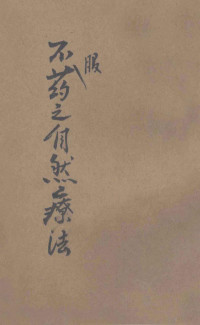 不服药之自然疗法